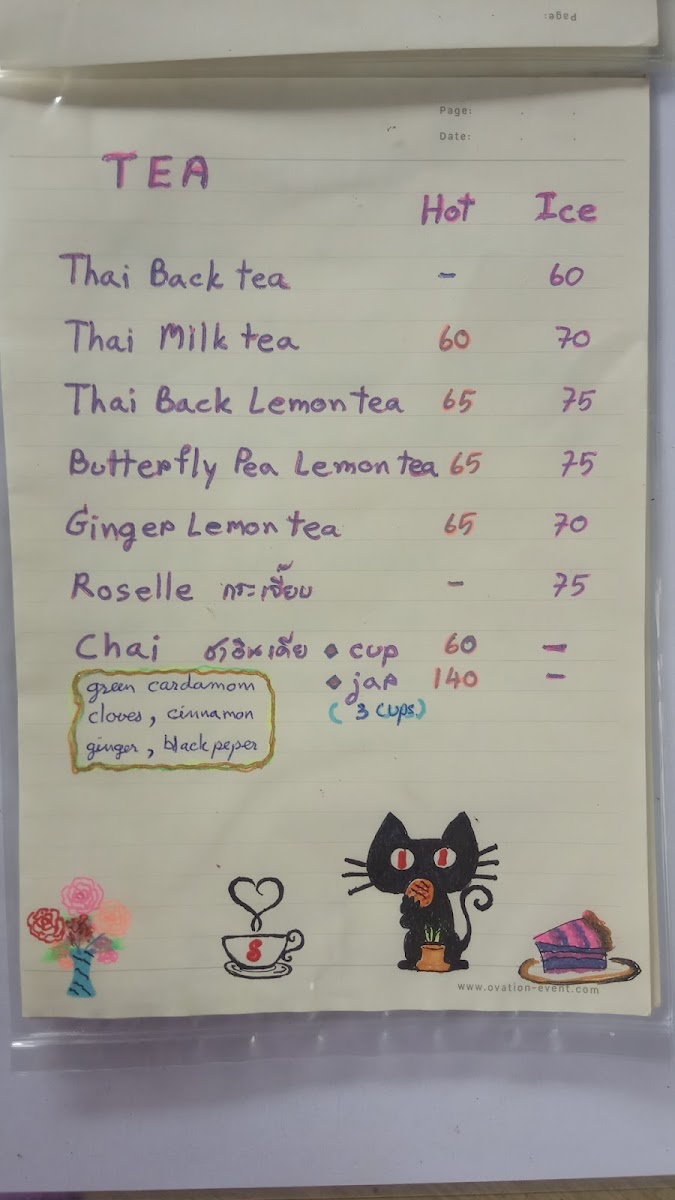 Page:
Page:
Date:
TEA
Hot Ice
Thai Back tea - 60
Thai Milk tea 60 70
Thai Back Lemon tea 65 75
Butterfly Pea Lemon tea 65 75
Ginger Lemon tea 65 70
Roselle กระเจี๊ยบ - 75
Chai ชาอินเดีย • cup 60 -
• jar 140 -
(3 cups.)
green cardamom
cloves, cinnamon
ginger, black peper
www.ovation-event.com